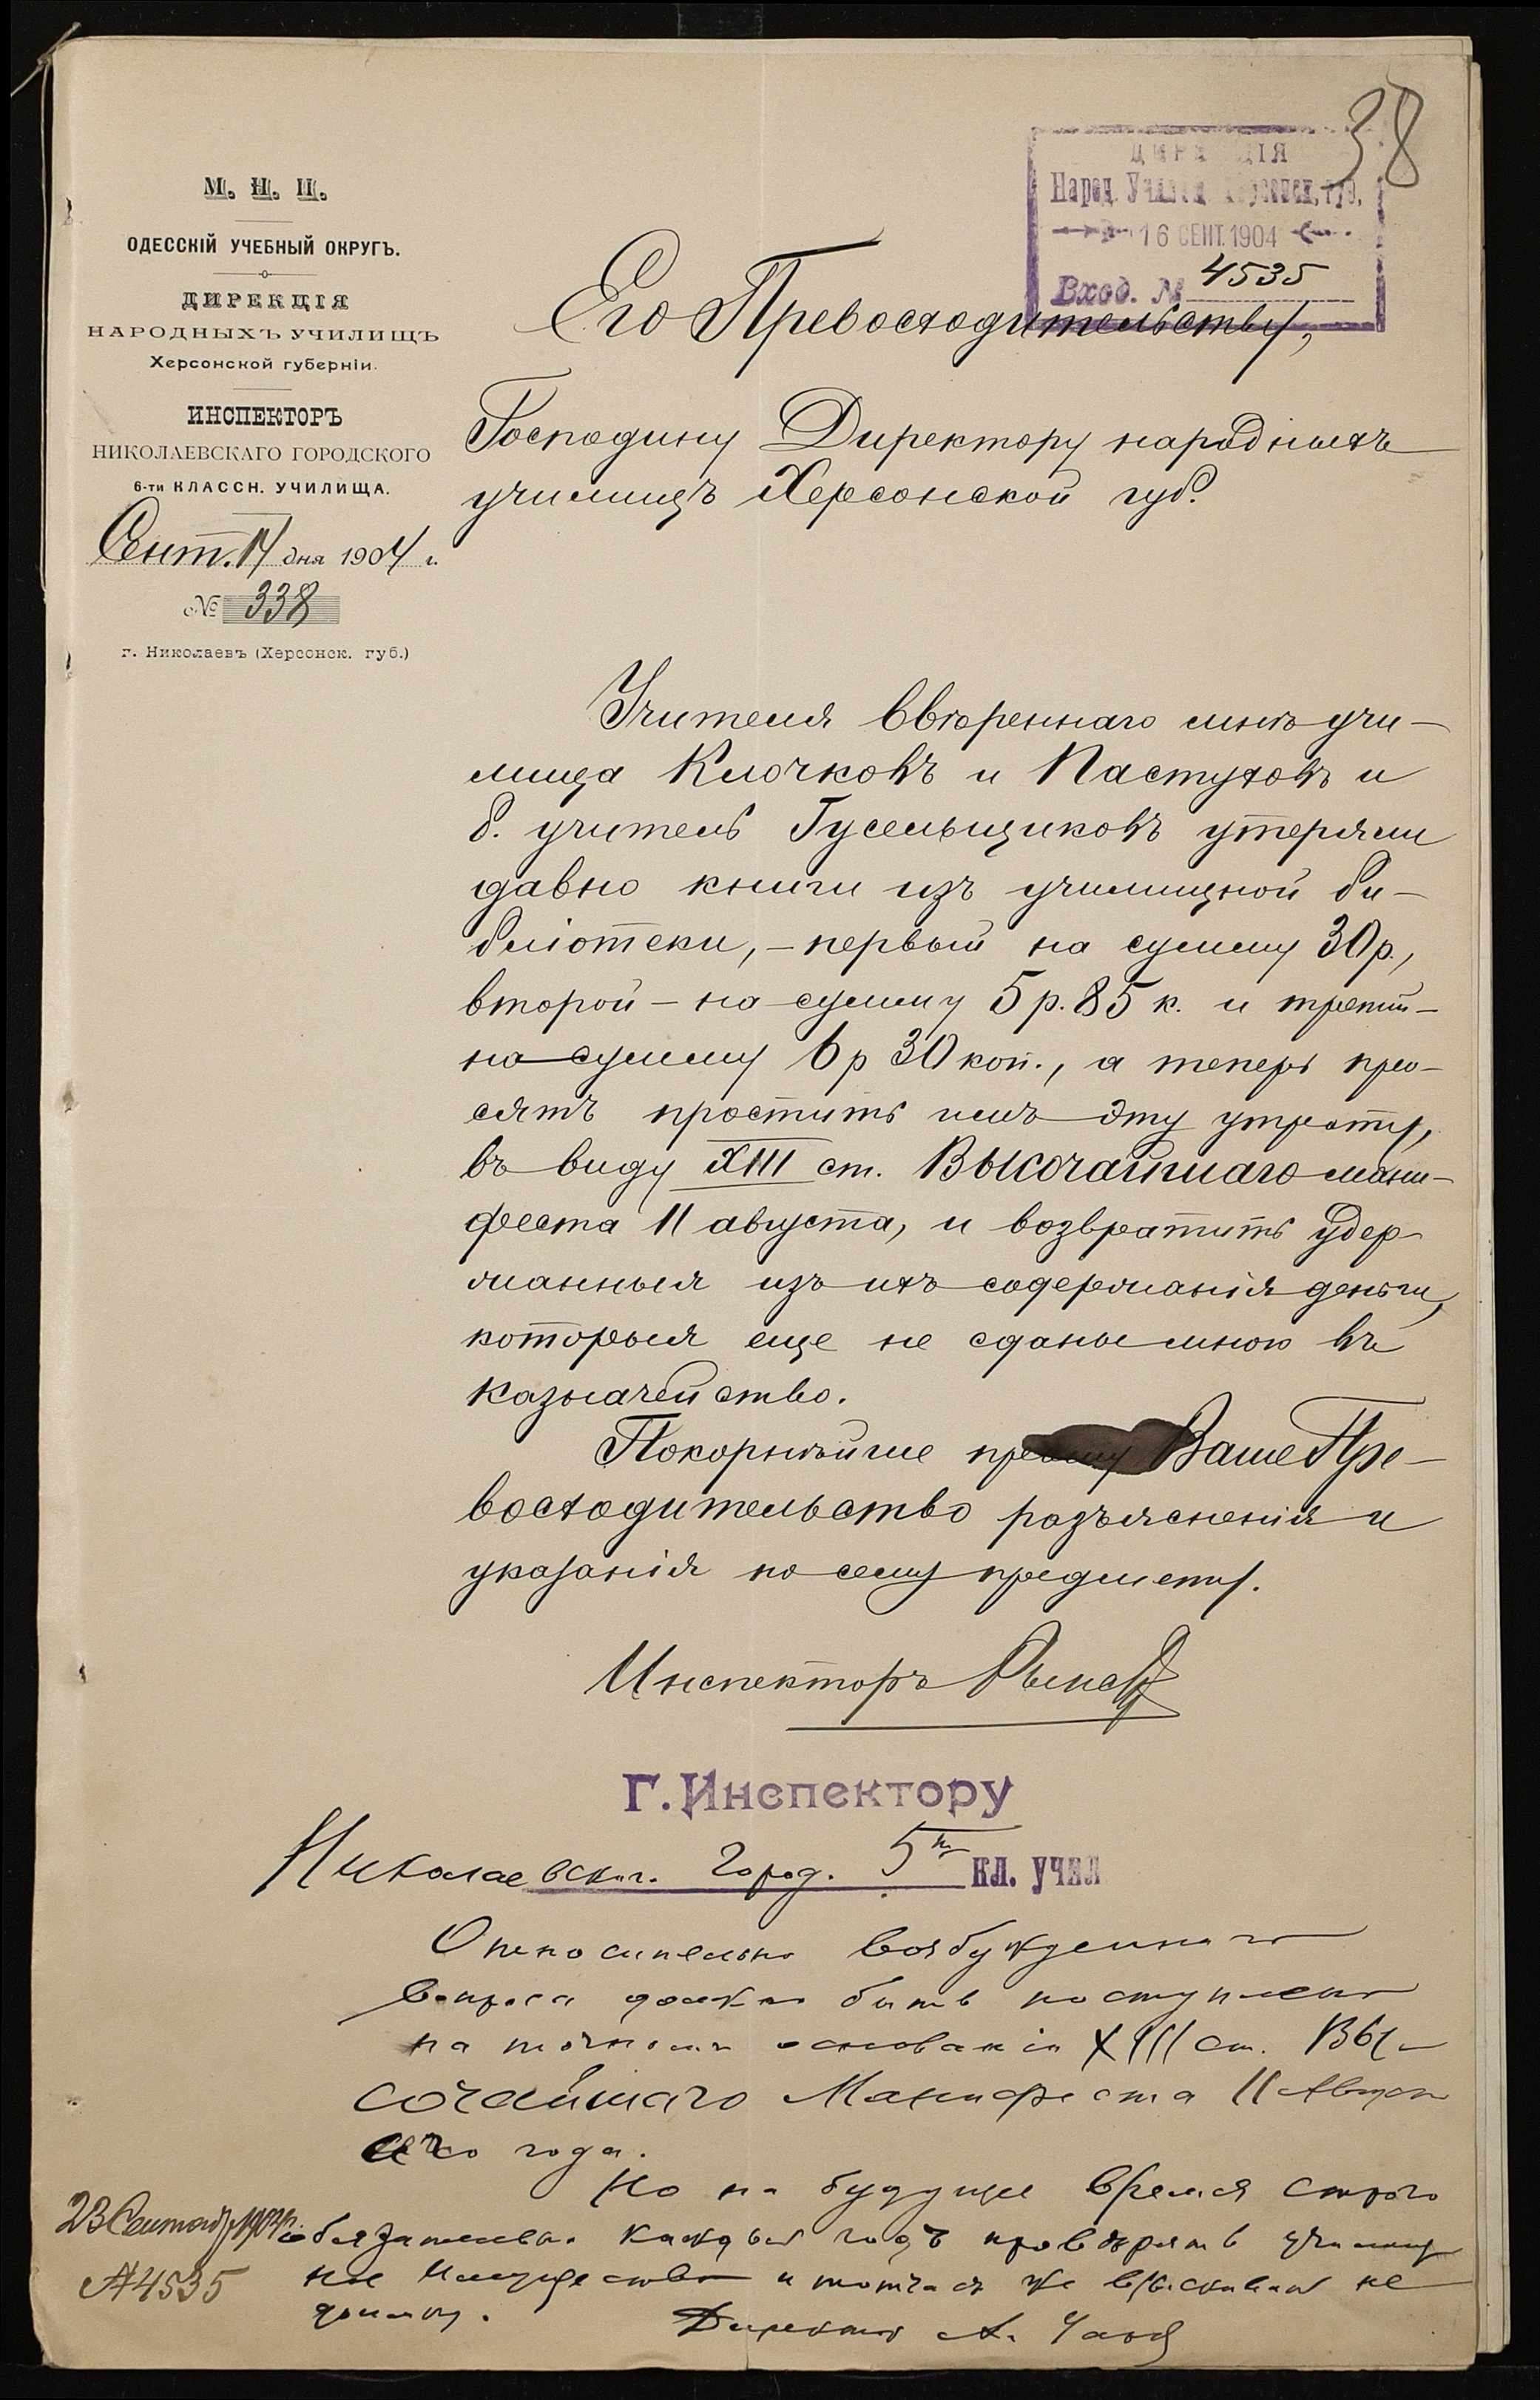 38
М. Н. П.
ОДЕССКІЙ УЧЕБНЫЙ ОКРУГЪ.
ДИРЕКЦІЯ
НАРОДНЫХЪ УЧИЛИЩЪ
Херсонской губерніи.
ИНСПЕКТОРЪ
НИКОЛАЕВСКАГО ГОРОДСКОГО
6-ти КЛАССН. УЧИЛИЩА.
Сент. 14 дня 1904 г.
№ 338
г. Николаевъ (Херсонск. губ.)
ДИРЕКЦІЯ
Народ. Училищ Херсонск. губ.
16 СЕНТ. 1904
Вход. № 4535
Его Превосходительству,
Господину Директору народныхъ
училищъ Херсонской губ.
Учителя ввѣреннаго мнѣ учи-
лища Клочковъ и Пастуховъ и
б. учитель Гусельщиковъ утеряли
давно книги изъ училищной би-
бліотеки, - первый на сумму 30 р.,
второй - на сумму 5 р. 85 к. и третій -
на сумму 6 р 30 коп., а теперь про-
сятъ простить имъ эту утрату,
въ виду XIII ст. Высочайшаго мани-
феста 11 августа, и возвратить удер-
жанныя изъ ихъ содержанія деньги,
которыя еще не сданы мною въ
казначейство.
Покорнѣйше прошу Ваше Пре-
восходительство разъясненія и
указанія по сему предмету.
Инспекторъ
Г. Инспектору
Николаевск. Город. 5 кл. учил
Относительно возбужденнаго
вопроса должно быть поступлено
на точномъ основаніи XIII ст. Вы-
сочайшаго Манифеста 11 Августа
сего года.
Но на будущее время строго
обязательно каждый годъ провѣрять училищ
ное Имущество и тотчасъ же взыскивать не
достачу.
Директоръ А.
23 Сентября 1904 г.
№ 4535